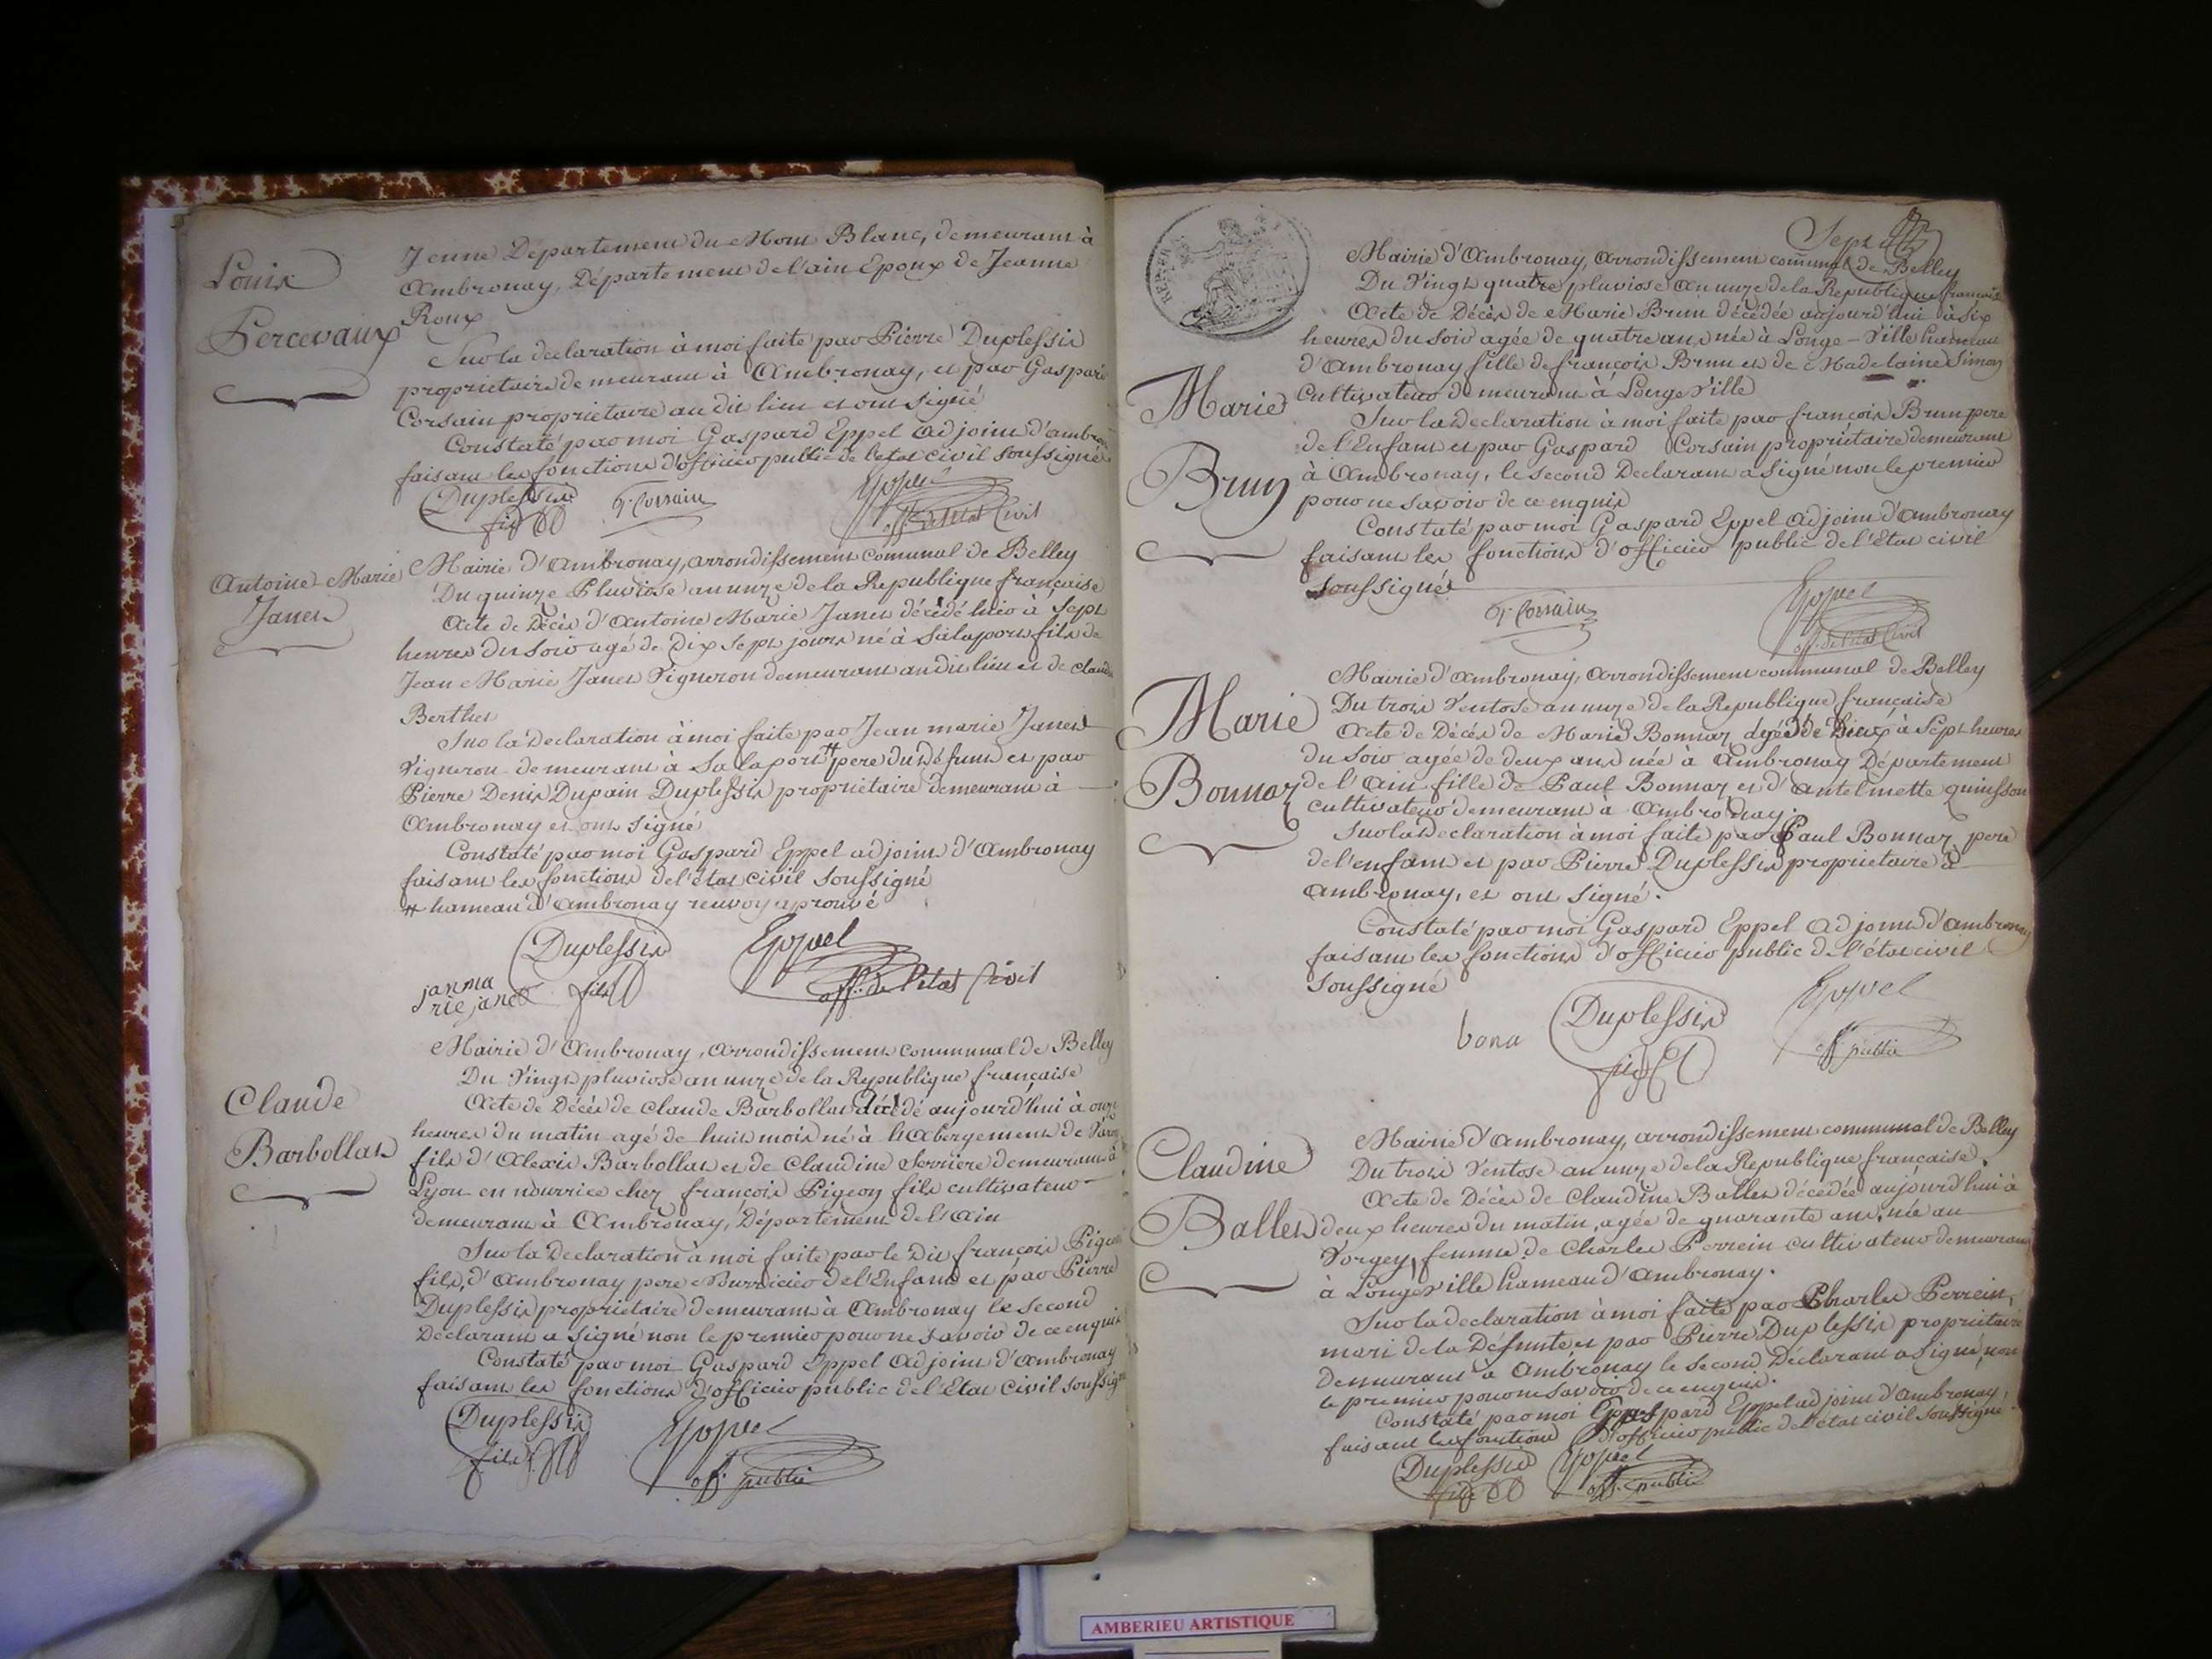 Louis
Percevaux
Jenne Département du Mont Blanc, demeurant à
Ambronay, Département de l'ain Epoux de Jeanne
Roux
Sur la declaration à moi faite par Pierre Duplessis
proprietaire demeurant à Ambronay, et par Gaspard
Corsain proprietaire au dit lieu et ont signé
Constaté par moi Gaspard Eppel adjoint d'ambronay
faisant les fonctions d'officier public de l'etat civil soussigné
Duplessis G. Corsain Eppel
fils off. de l'etat Civil
Antoine Marie
Janet
Mairie d'Ambronay, arrondissement comunal de Belley
Du quinze Pluviose an unze de la Republique française
Acte de Décès d'Antoine Marie Janet décédé hier à Sept
heures du soir agé de Dix Sept jours né à Salaport fils de
Jean Marie Janet Vigneron demeurant au dit lieu et de claudine
Berthet
Sur la declaration à moi faite par Jean marie Janet
Vigneron demeurant à Salaport # pere du défunt et par
Pierre Denis Dupain Duplessis proprietaire demeurant à
Ambronay et ont signé
Constaté par moi Gaspard Eppel adjoint d'Ambronay
faisant les fonctions de l'état civil soussigné
# hameau d'Ambronay renvoy aprouvé
Duplessis Eppel
janma fils off. de l'etat Civil
rie janet
Claude
Barbollat
Mairie d'Ambronay, arrondissement communal de Belley
Du Vingt pluviose an unze de la Republique française
Acte de Décès de Claude Barbollat décédé aujourd'hui à onze
heures du matin agé de huit mois né à l'Abergement de
fils d'Alexis Barbollat et de Claudine Serriere demeurant à
Lyon en nourrice chez françois Pigeon fils cultivateur
demeurant à Ambronay, Département de l'ain
Sur la declaration à moi faite par le dit françois Pigeon
fils, d'Ambronay pere Nurricier de l'Enfant et par Pierre
Duplessis proprietaire demeurant à Ambronay le second
Déclarant a signé non le premier pour ne savoir de ce enquis
Constaté par moi Gaspard Eppel adjoint d'Ambronay
faisant les fonctions d'officier public de l'Etat civil soussigné
Duplessis Eppel
fils off. public
Sept
Marie
Brun
Mairie d'Ambronay, arrondissement communal de Belley
Du Vingt quatre pluviose an unze de la Republique française
Acte de Décès de Marie Brun décédée aujourd'hui à six
heures du soir agée de quatre ans née à Longe-Ville hameau
d'Ambronay fille de françois Brun et de Madelaine Simon
Cultivateur demeurant à LongeVille
Sur la declaration à moi faite par françois Brun pere
de l'Enfant et par Gaspard Corsain propriétaire demeurant
à Ambronay, le second Declarant a signé non le premier
pour ne savoir de ce enquis
Constaté par moi Gaspard Eppel adjoint d'ambronay
faisant les fonctions d'officier public de l'Etat civil
soussigné
G. Corsain Eppel
off. de l'etat Civil
Marie
Bonnaz
Mairie d'Ambronay, arrondissement communal de Belley
Du trois Ventose an unze de la Republique française
Acte de Décès de Marie Bonnaz à Sept heures
du soir agée de deux ans née à Ambronay Département
de l'Ain fille de Paul Bonnaz et d'antelmette quinsson
cultivateur demeurant à Ambronay.
Sur la declaration à moi faite par Paul Bonnaz pere
de l'enfant et par Pierre Duplessis proprietaire à
ambronay, et ont signé.
Constaté par moi Gaspard Eppel adjoint d'ambronay
faisant les fonctions d'officier public de l'état civil
soussigné
bona Duplessis Eppel
fils off. public
Claudine
Ballet
Mairie d'Ambronay, arrondissement communal de Belley
Du trois Ventose an unze de la Republique française.
Acte de Décès de Claudine Ballet décédée aujourd'hui à
deux heures du matin, agée de quarante ans, née au
Vorgey, femme de Charles Perrein cultivateur demeurant
à LongeVille hameau d'Ambronay.
Sur la declaration à moi faite par Charles Perrein,
mari de la Défunte et par Pierre Duplessis proprietaire
demeurant à Ambronay le second Déclarant a signé, non
le premier pour ne savoir de ce enquis.
Constaté par moi Gaspard Eppel adjoint d'ambronay,
faisant les fonctions d'officier public de l'état civil soussigné
Duplessis Eppel
fils off. public
AMBERIEU ARTISTIQUE